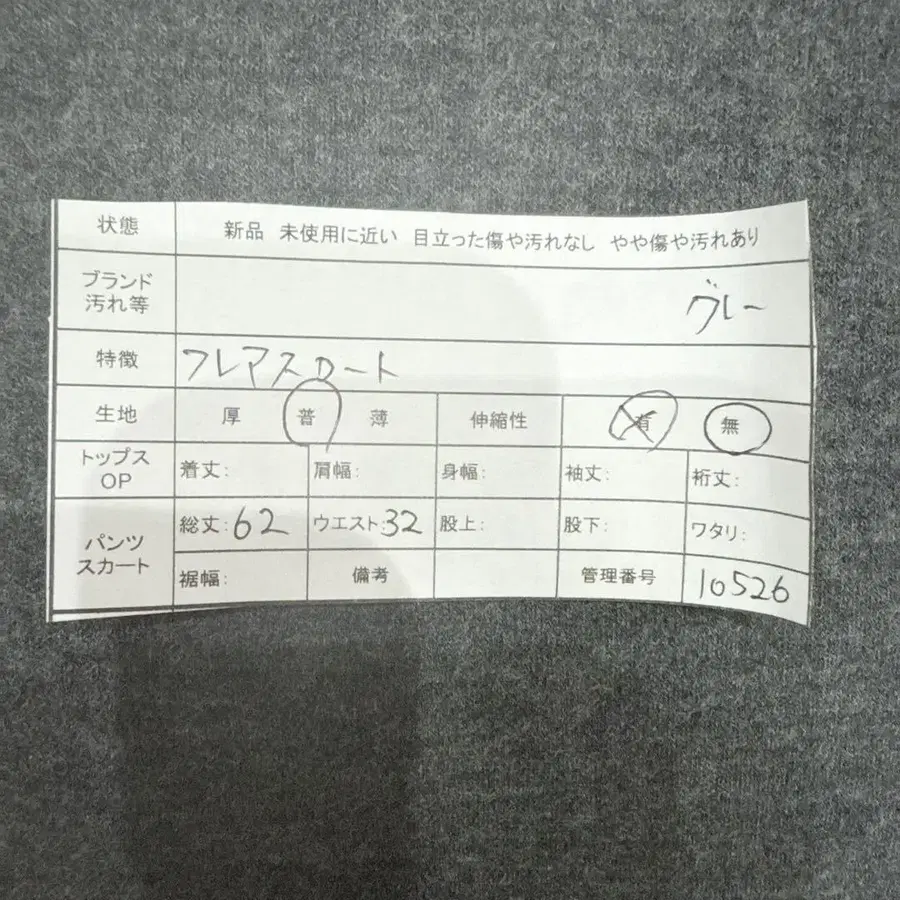 状態 新品 未使用に近い 目立った傷や汚れなし やや傷や汚れあり
ブランド
汚れ等 グレー
特徴 フレアスカート
生地 厚 普 薄 伸縮性 有 無
トップス
OP 着丈: 肩幅: 身幅: 袖丈: 裄丈:
パンツ
スカート 総丈:62 ウエスト:32 股上: 股下: ワタリ:
裾幅: 備考 管理番号 10526